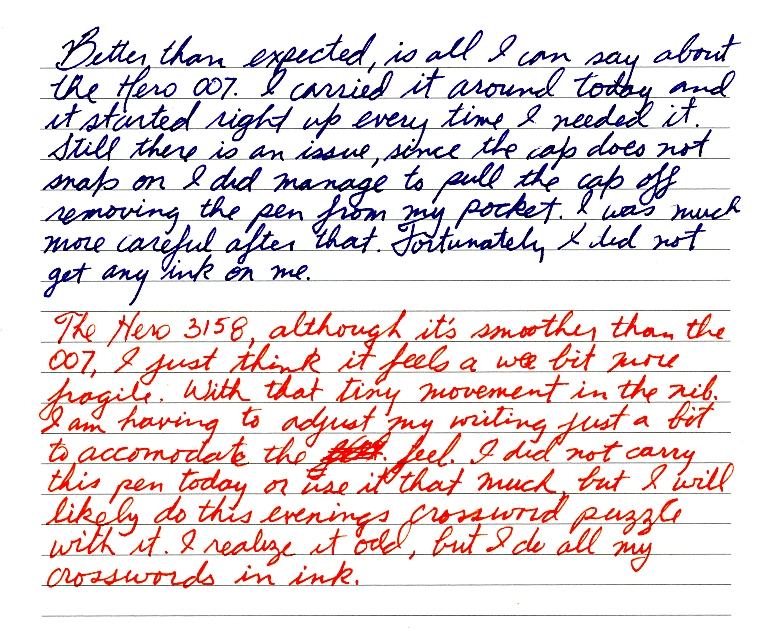 Better than expected, is all I can say about
the Hero 007. I carried it around today and
it started right up every time I needed it.
Still there is an issue, since the cap does not
snap on I did manage to pull the cap off
removing the pen from my pocket. I was much
more careful after that. Fortunately I did not
get any ink on me.
The Hero 3158, although it's smoother than the
007, I just think it feels a wee bit more
fragile. With that tiny movement in the nib.
I am having to adjust my writing just a bit
to accomodate the feel. I did not carry
this pen today or use it that much, but I will
likely do this evenings crossword puzzle
with it. I realize it odd, but I do all my
crosswords in ink.